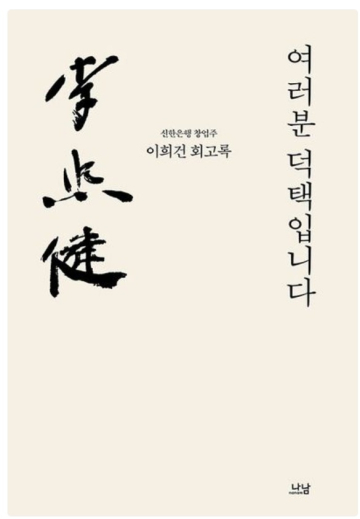 여러분 덕택입니다
신한은행 창업주
이희건 회고록
李熙健
나남